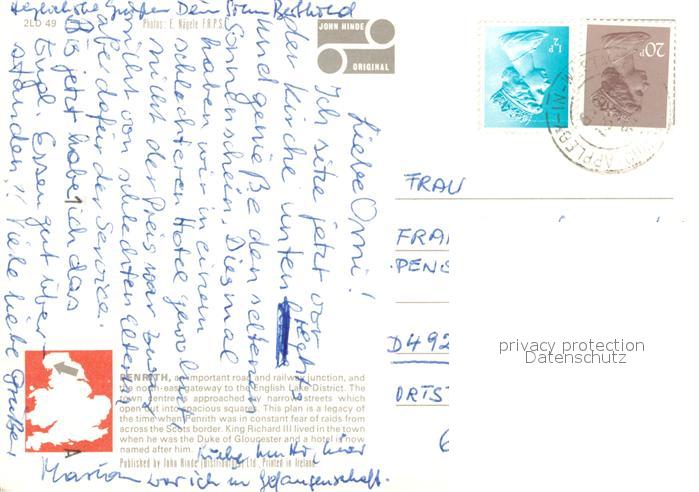 2LD 49
Photos: E. Nägele F.R.P.S.
JOHN HINDE
ORIGINAL
½P
20P
Liebe Omi!
Ich sitze jetzt vor
der Kirche unten rechts
und genieße den seltenen
Sonnenschein. Diesmal
haben wir in einem
schlechteren Hotel gewohnt
nicht der Preis war
von schlechten Eltern
aber dafür der Service.
Bis jetzt habe ich das
Engl. Essen gut über-
standen!! Viele liebe Grüße
Marion
Herzliche Grüße Dein Sohn Berthold
war ich in Gefangenschaft.
FRAU
D492
PENRITH, an important road and railway junction, and
the north-east gateway to the English Lake District. The
town centre is approached by narrow streets which
open out into spacious squares. This plan is a legacy of
the time when Penrith was in constant fear of raids from
across the Scots border. King Richard III lived in the town
when he was the Duke of Gloucester and a hotel is now
named after him.
Published by John Hinde (Distributors) Ltd. Printed in Ireland.
privacy protection
Datenschutz